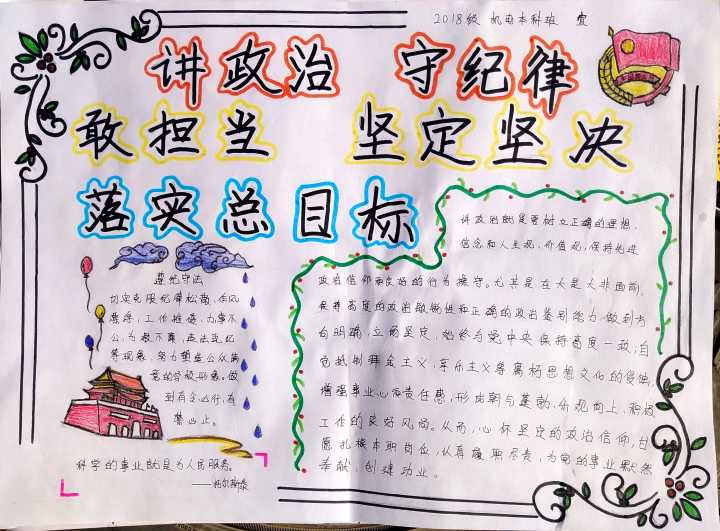 2018级 机电本科班 宜
讲政治 守纪律
敢担当 坚定坚决
落实总目标
遵纪守法
切实克服纪律松弛、作风
飘浮,工作推诿,办事不
公,为教不廉,违法乱纪
等现象,努力塑造公众满
意的学校形象。做
到有令必行,有
禁必止。
科学的事业就是为人民服务。
——托尔斯泰
讲政治就是要树立正确的理想、
信念和人生观、价值观,保持先进
政治信仰和良好的行为操守。尤其是在大是大非面前,
保持高度的政治敏锐性和正确的政治鉴别能力,做到方
向明确,立场坚定,始终与党中央保持高度一致;自
觉抵制拜金主义,享乐主义等腐朽思想文化的侵蚀,
增强事业心和责任感,形成朝气蓬勃、乐观向上、积极
工作的良好风尚。从而,心怀坚定的政治信仰,甘
愿扎根本职岗位,认真履职尽责,为党的事业默默
奉献,创建功业。